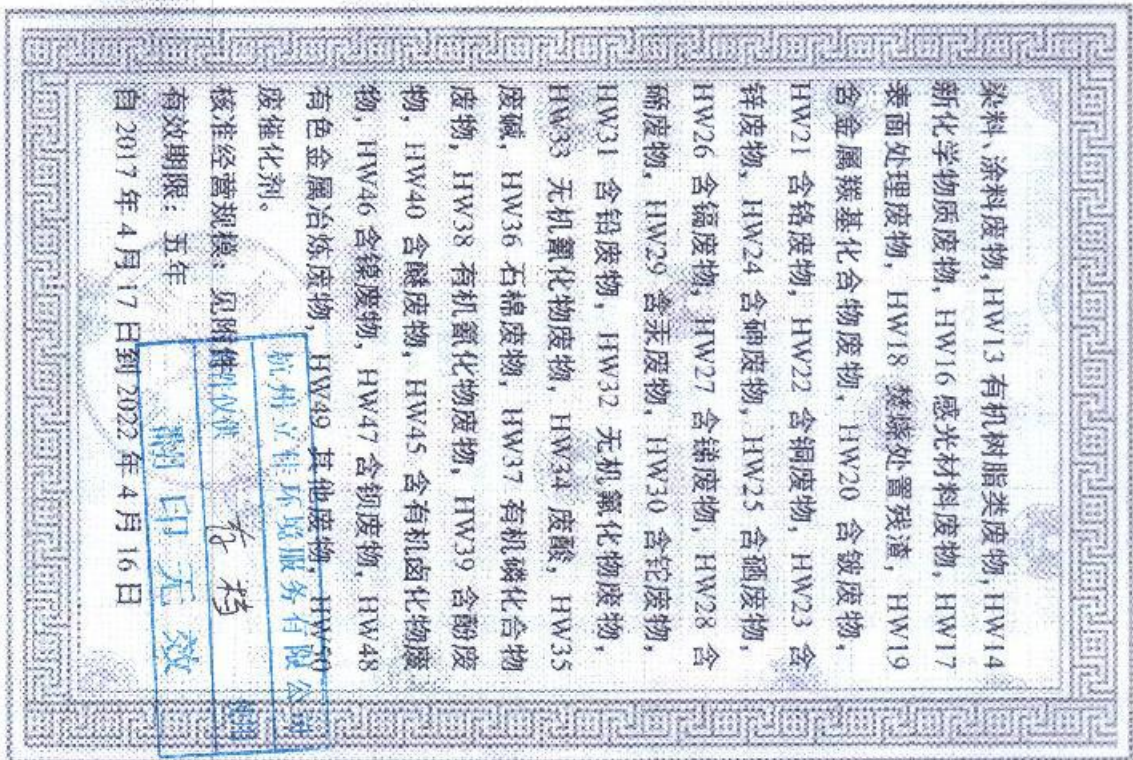 染料、涂料废物, HW13 有机树脂类废物, HW14
新化学物质废物, HW16 感光材料废物, HW17
表面处理废物, HW18 焚烧处置残渣, HW19
含金属羰基化合物废物, HW20 含铍废物,
HW21 含铬废物, HW22 含铜废物, HW23 含
锌废物, HW24 含砷废物, HW25 含硒废物,
HW26 含镉废物, HW27 含锑废物, HW28 含
碲废物, HW29 含汞废物, HW30 含铊废物,
HW31 含铅废物, HW32 无机氟化物废物,
HW33 无机氰化物废物, HW34 废酸, HW35
废碱, HW36 石棉废物, HW37 有机磷化合物
废物, HW38 有机氰化物废物, HW39 含酚废
物, HW40 含醚废物, HW45 含有机卤化物废
物, HW46 含镍废物, HW47 含钡废物, HW48
有色金属冶炼废物, HW49 其他废物, HW50
废催化剂。
核准经营规模: 见附件
有效期限: 五年
自 2017 年 4 月 17 日到 2022 年 4 月 16 日
杭州立佳环境服务有限公司
仅供 存档 用
翻印无效